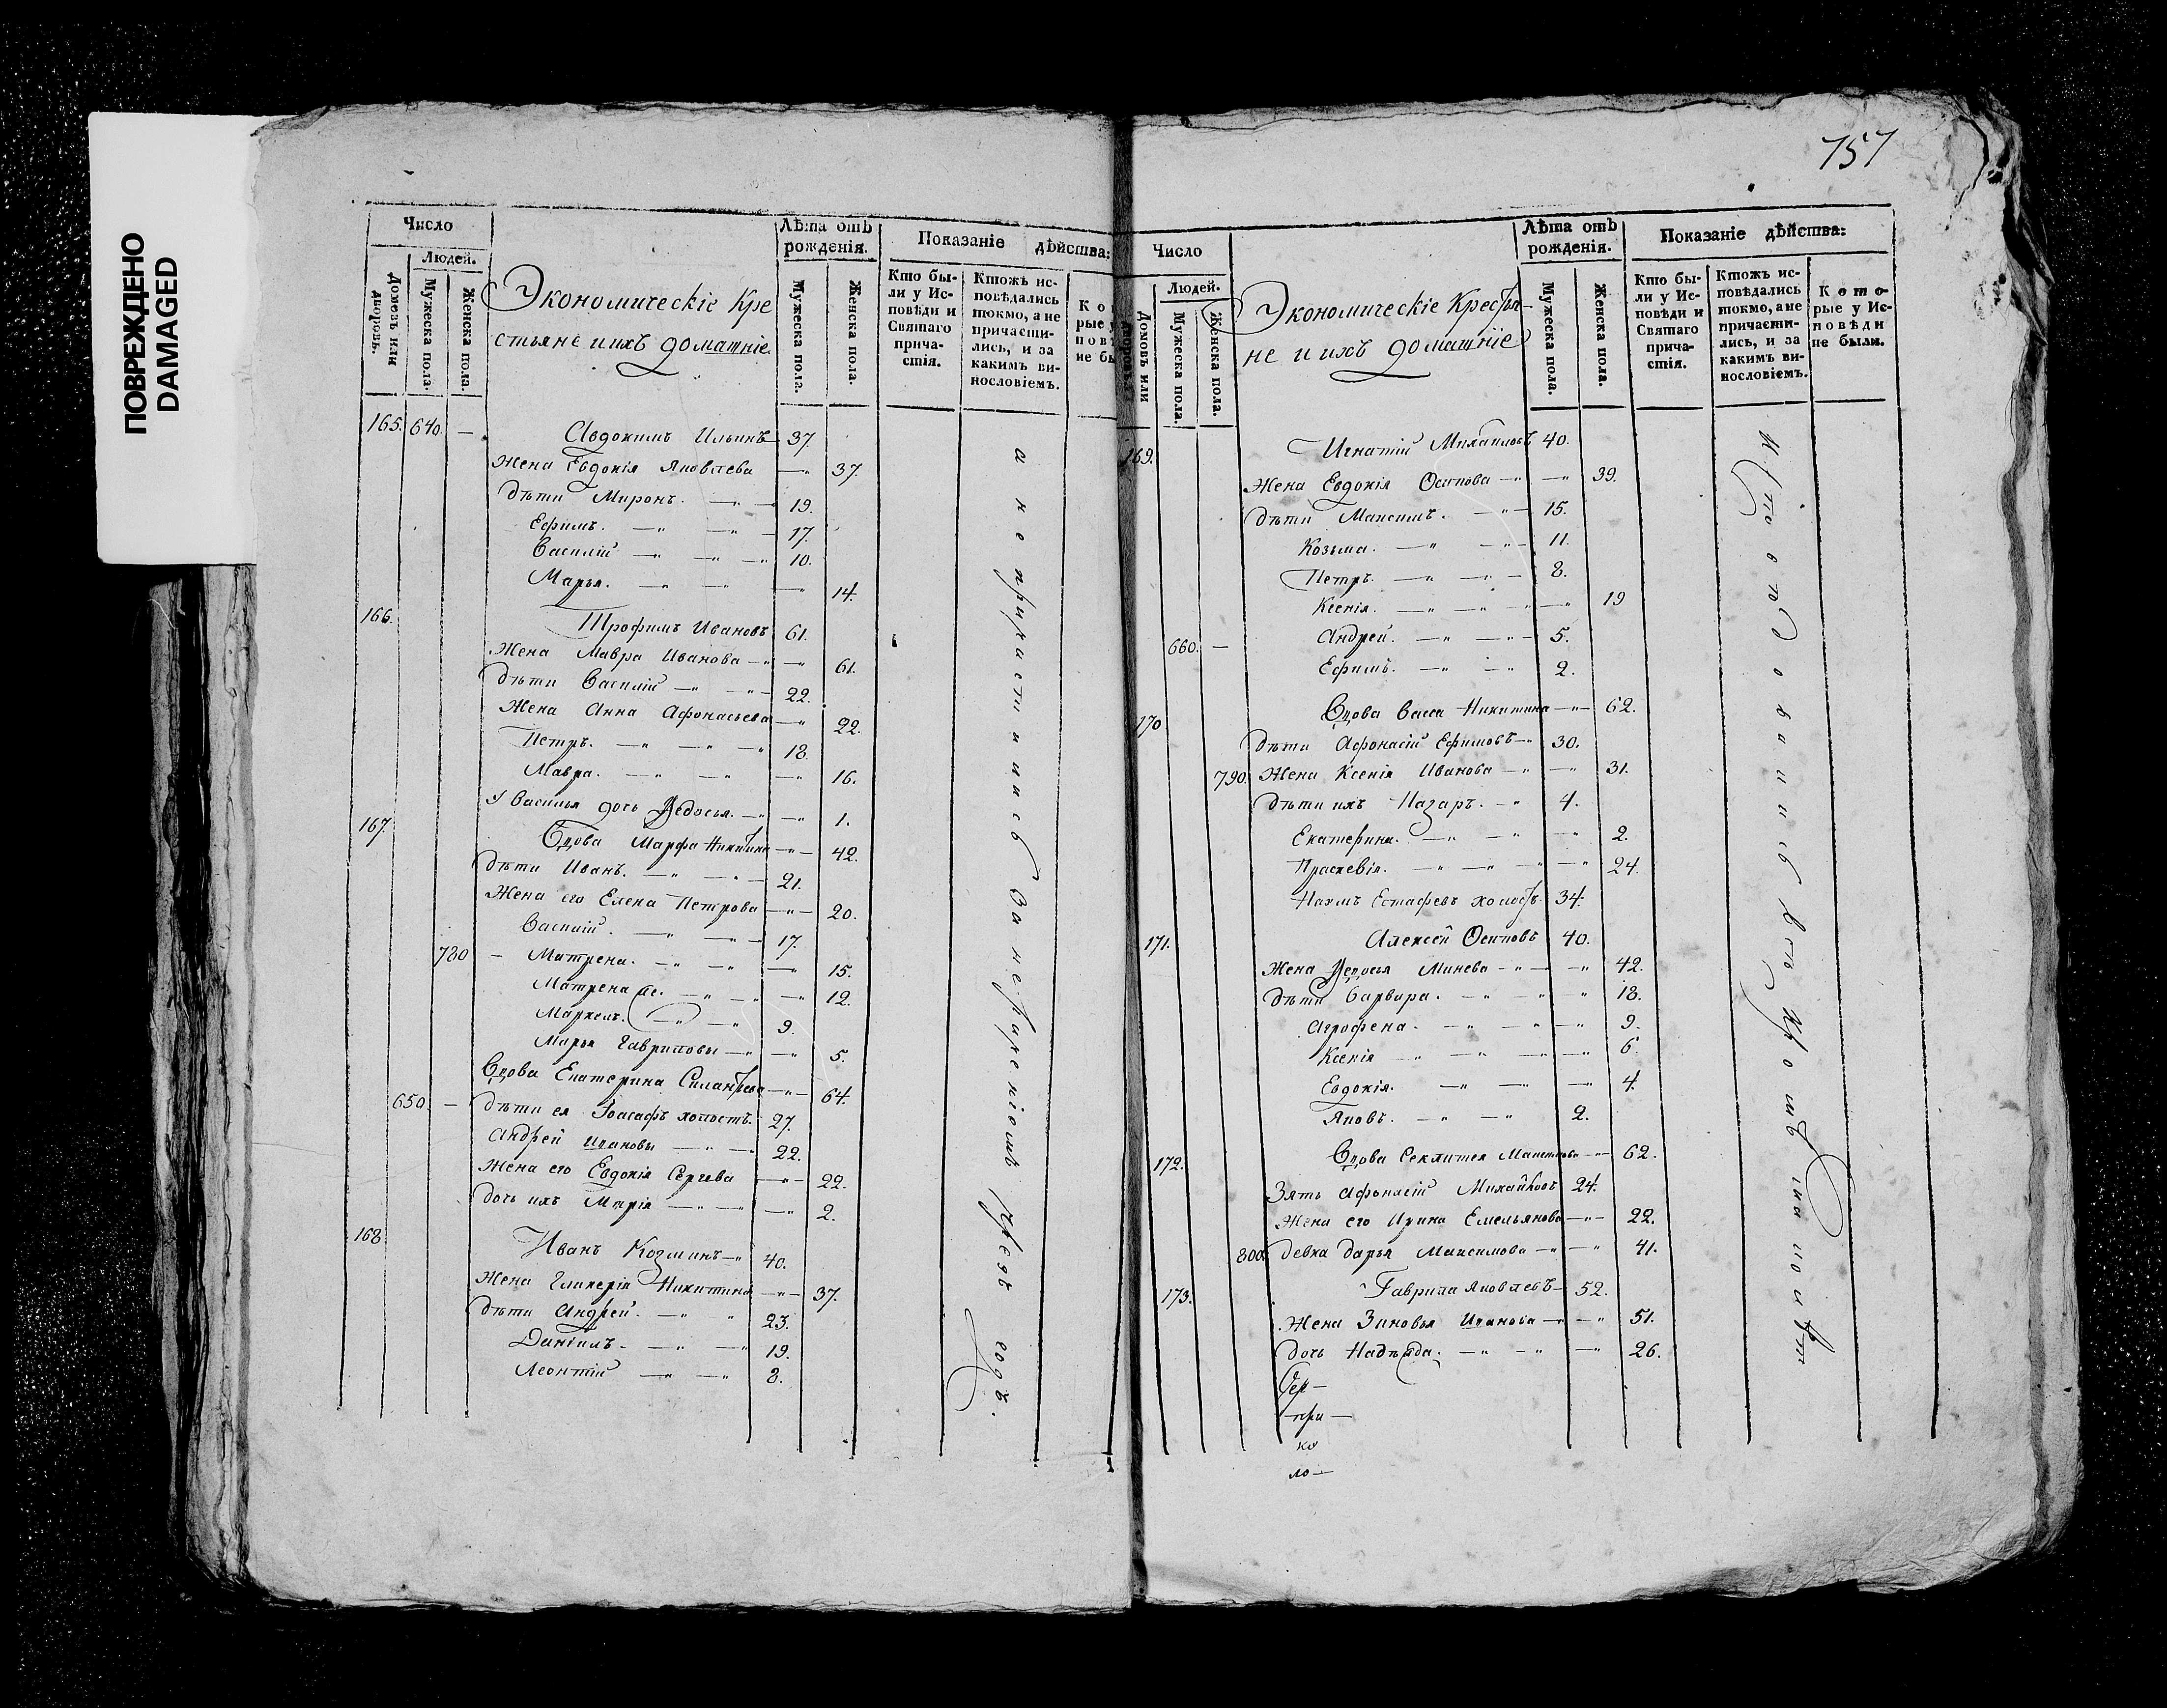 ПОВРЕЖДЕНО
DAMAGED
Число
Людей.
Домовъ или дворовъ.
Мужеска пола.
Женска пола.
Экономическіе Кре
стьяне и ихъ домашніе
Лѣта отъ рожденія.
Мужеска пола.
Женска пола.
Показаніе дѣйства:
Кто бы-
ли у Ис-
повѣди и
Святаго
прича-
стія.
Ктожъ ис-
повѣдались
токмо, а не
причасти-
лись, и за
какимъ ви-
нословіемъ.
165. 640. — Авдокимъ Ильинъ — 37.
Жена Евдокія Яковлева —„ 37.
Дѣти Миронъ. —„— 19.
Ефимъ. —„ —„— 17.
Василій —„ —„ —„ 10.
Марья. —„ —„ —„ 14.
166. Трофимъ Ивановъ 61.
Жена Мавра Иванова —„ —„ 61.
Дѣти Василій —„ „— 22.
Жена Анна Афонасьева —„ 22.
Петръ. —„ —„ —„ 18.
Мавра. —„ —„ —„ 16.
У Василья дочь Ѳедосья. —„ —„ 1.
167. Вдова Марфа Никитина —„— 42.
Дѣти Иванъ. —„ —„— 21.
Жена его Елена Петрова —„— 20.
Василій. —„ —„— 17.
780 — Матрена. —„ —„ —„ 15.
Матрена же. —„ —„ —„ 12.
Маркелъ. —„ —„ 9.
Марья Гавриловы —„ —„ 5.
Вдова Екатерина Силантьева —„— 64.
650. — Дѣти ея Іоасафъ холостъ. 27.
Андрей Ивановы —„ —„ 22.
Жена его Евдокія Сергева —„— 22.
Дочь ихъ Марія —„ —„ —„ 2.
168 Иванъ Козминъ —„ 40.
Жена Гликерія Никитина —„— 37.
Дѣти Андрей. —„ „ 23.
Даніилъ. —„ —„ 19.
Леонтій —„ —„ 8.
а не причастились за нераченіемъ чрезъ годъ.
757
Число
Людей.
Домовъ или
Мужеска пола.
Женска пола.
Экономическіе Крестья-
не и ихъ домашніе
Лѣта отъ рожденія.
Мужеска пола.
Женска пола.
Показаніе дѣйства:
Кто бы-
ли у Ис-
повѣди и
Святаго
прича-
стія.
Ктожъ ис-
повѣдались
токмо, а не
причасти-
лись, и за
какимъ ви-
нословіемъ.
Кото-
рые у Ис-
повѣди
не были.
169. Игнатій Михаиловъ 40.
Жена Евдокія Осипова —„ —„ 39.
Дѣти Максимъ. —„— 15.
Козьма. —„ —„— 11.
Петръ. —„ —„ — 8.
Ксенія. —„ —„ „ —„ 19
660. — Андрей. —„ —„— 5.
Ефимъ. —„ —„ 2.
170 Вдова Васса Никитина —„— 62.
Дѣти Афонасій Ефимовъ —„ 30.
790. Жена Ксенія Иванова —„ —„ 31.
Дѣти ихъ Назаръ. —„ 4.
Екатерина. —„ —„ —„ 2.
Праскевія. —„ —„ „ —„ 24.
Наумъ Естафевъ холостъ. 34.
171. Алексей Осиповъ 40.
Жена Ѳедосья Минева —„ — —„ 42.
Дѣти Варвара. —„ —„ „ 18.
Агрофена. —„ —„ —„ 9.
Ксенія —„ —„ —„ —„ 6.
Евдокія. —„ —„ —„ 4.
Яковъ. —„ —„ 2.
172. Вдова —„— 62.
Зять Афонасій Михайловъ 24.
Жена его Ирина Емельянова —„— 22.
800. Девка Дарья Максимова —„ —„ 41.
173. Гаврила Яковлевъ — 52.
Жена Зиновья Иванова —„ —„ 51.
Дочь Надежда. —„ —„ —„ 26.
при —
ко
ло —